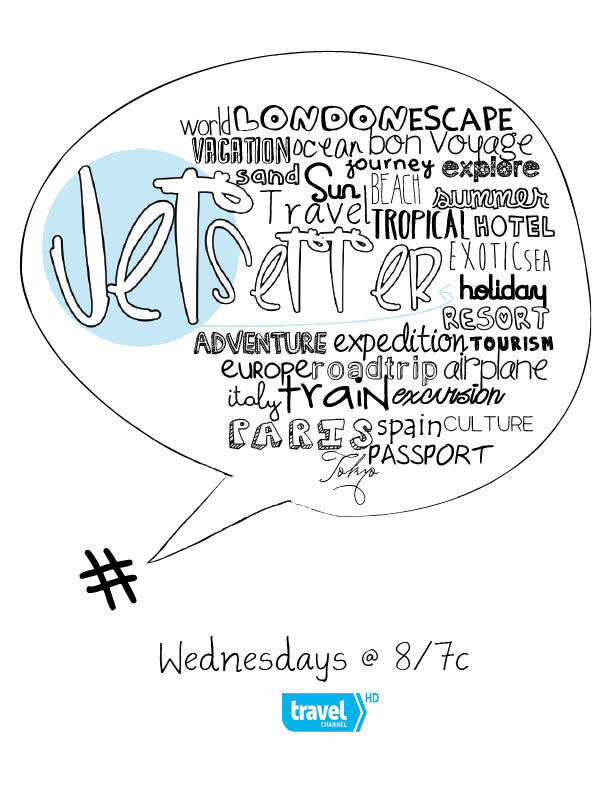 world LONDON ESCAPE
VACATION ocean bon voyage
sand journey explore
Sun BEACH summer
Travel TROPICAL HOTEL
JeTseTTER EXOTIC SEA
holiday
RESORT
ADVENTURE expedition TOURISM
EUROPE roadtrip airplane
italy traiN excursion
PARIS spain CULTURE
Tokyo PASSPORT
#
Wednesdays @ 8/7c
travel HD
CHANNEL